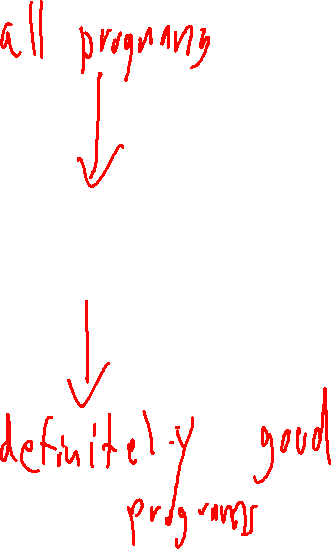 all programs
definitely good
programs